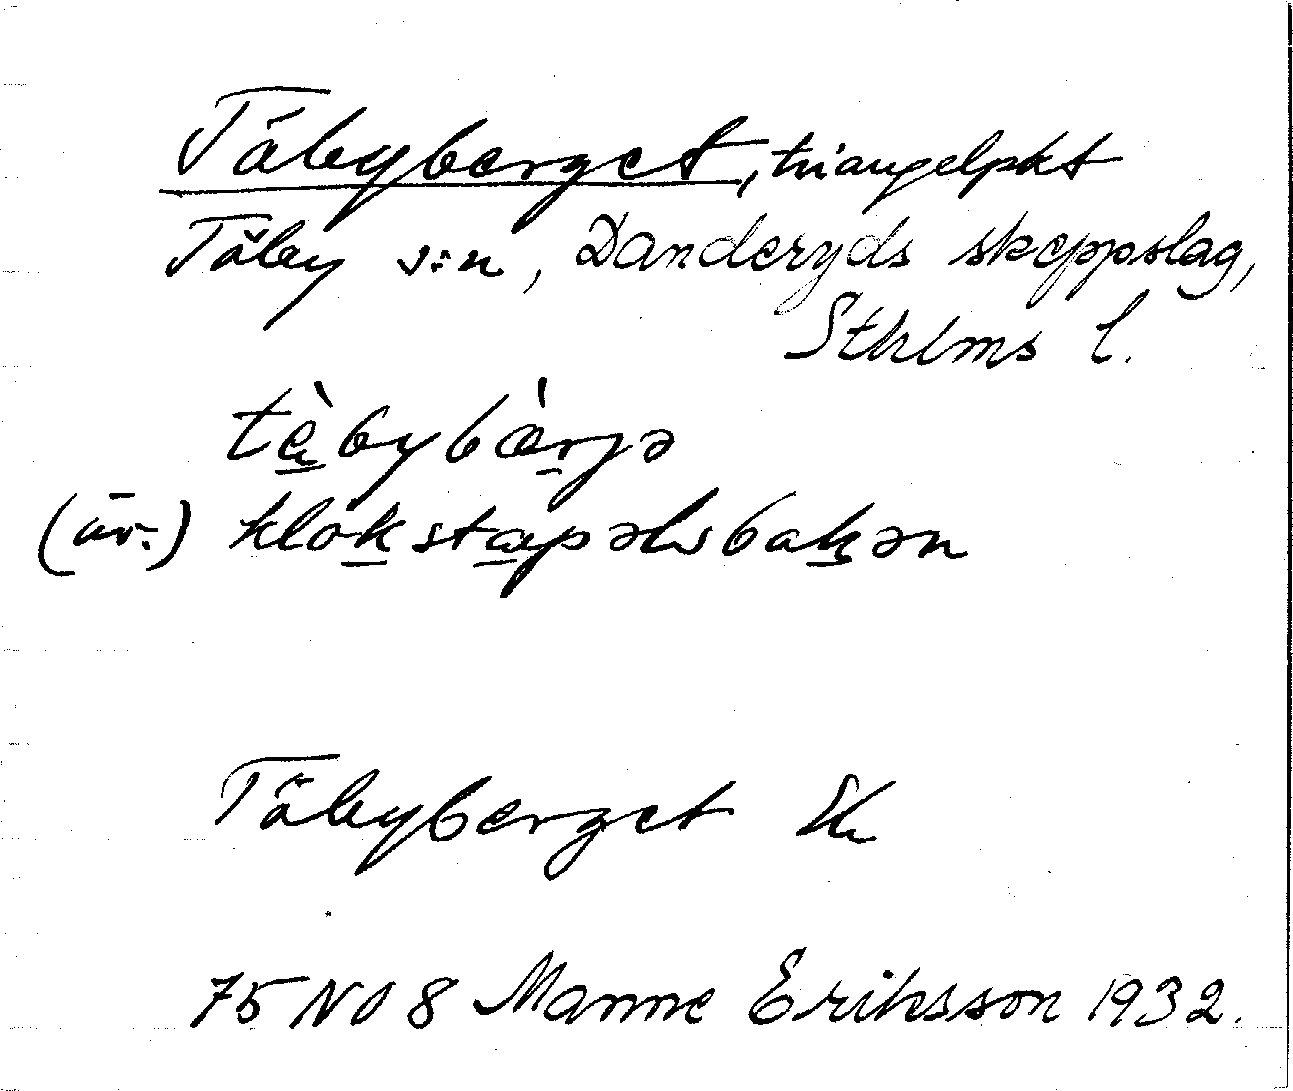 Täbyberget, triangelpkt
Täby s:n, Danderyds skeppslag,
Sthlms l.
tè̱bybæ̀ṟjə
(äv.) klok̲sta̲pəlsbak̲ən
Täbyberget Ek
75 NO 8 Manne Eriksson 1932.